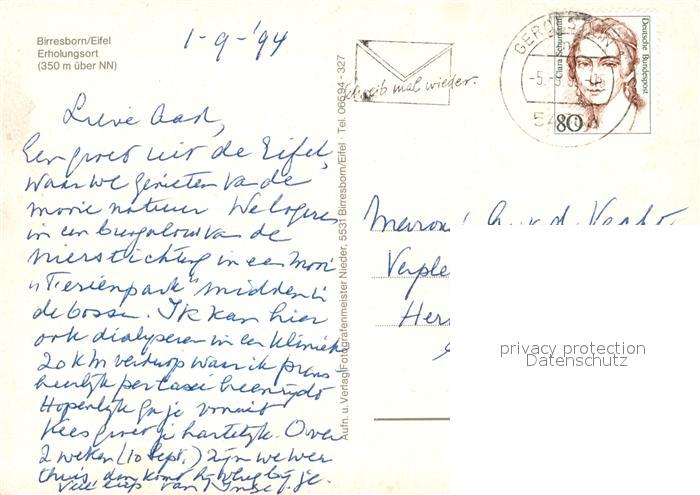 Birresborn/Eifel
Erholungsort
(350 m über NN)
1-9-'94
Lieve Aad,
Een groet uit de Eifel,
waar we genieten van de
mooie natuur. We logeren
in een bungalow van de
nierstichting in een mooi
"Ferienpark" midden in
de bossen. Ik kan hier
ook dialyseren in een kliniek
20 km verderop waar ik prins-
heerlijk per taxi heen rijd
Hopelijk ga je vooruit
Kees groet je hartelijk. Over
2 weken (10 sept.) zijn we weer
thuis, dan komt hij vlug bij je.
Veel liefs van
Aufn. u. Verlag Fotografenmeister Nieder, 5531 Birresborn/Eifel · Tel. 06594 - 327
schreib mal wieder.
GEROLSTEIN 1
Clara Schumann
Deutsche Bundespost
80
Mevrouw
Verple
Her
privacy protection
Datenschutz